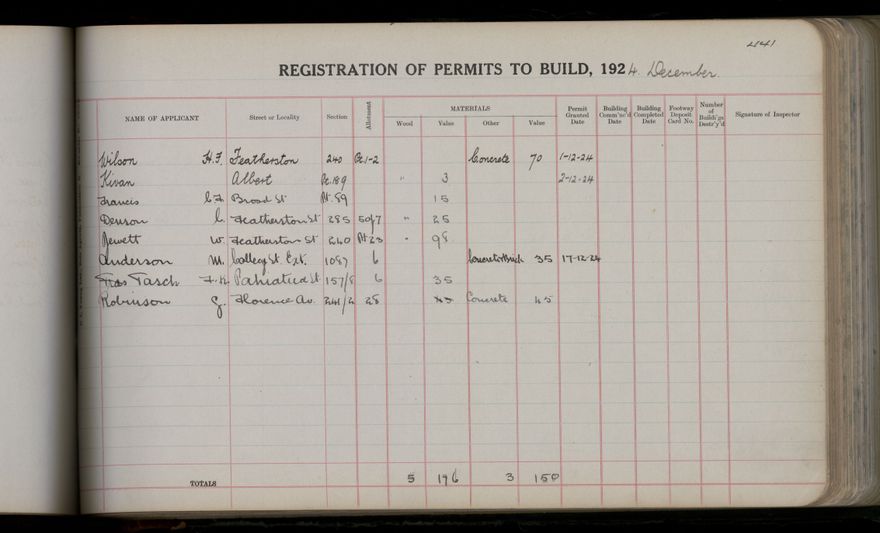 441
REGISTRATION OF PERMITS TO BUILD, 1924. December.
NAME OF APPLICANT Street or Locality Section Allotment MATERIALS Permit Granted Date Building Comm'nc'd Date Building Completed Date Footway Deposit Card No. Number of Buildi'gs Destr'y'd Signature of Inspector
Wood Value Other Value
Wilson H.F. Featherston 240 Pt.1-2 Concrete 70 1-12-24
Kivan Albert Pt.189 " 3 2-12-24
Francis Broad St Pt.89 15
Denson C. Featherston St 285 " 25
Jewett W. Featherston St 240 Pt 23 " 98
Anderson M. College St. Ext. 1087 6 Concrete & Brick 35 17-12-24
Tasch Pahiatua St 157/8 6 35
Robinson G. Florence Av. 28 Concrete 45
TOTALS 5 196 3 150